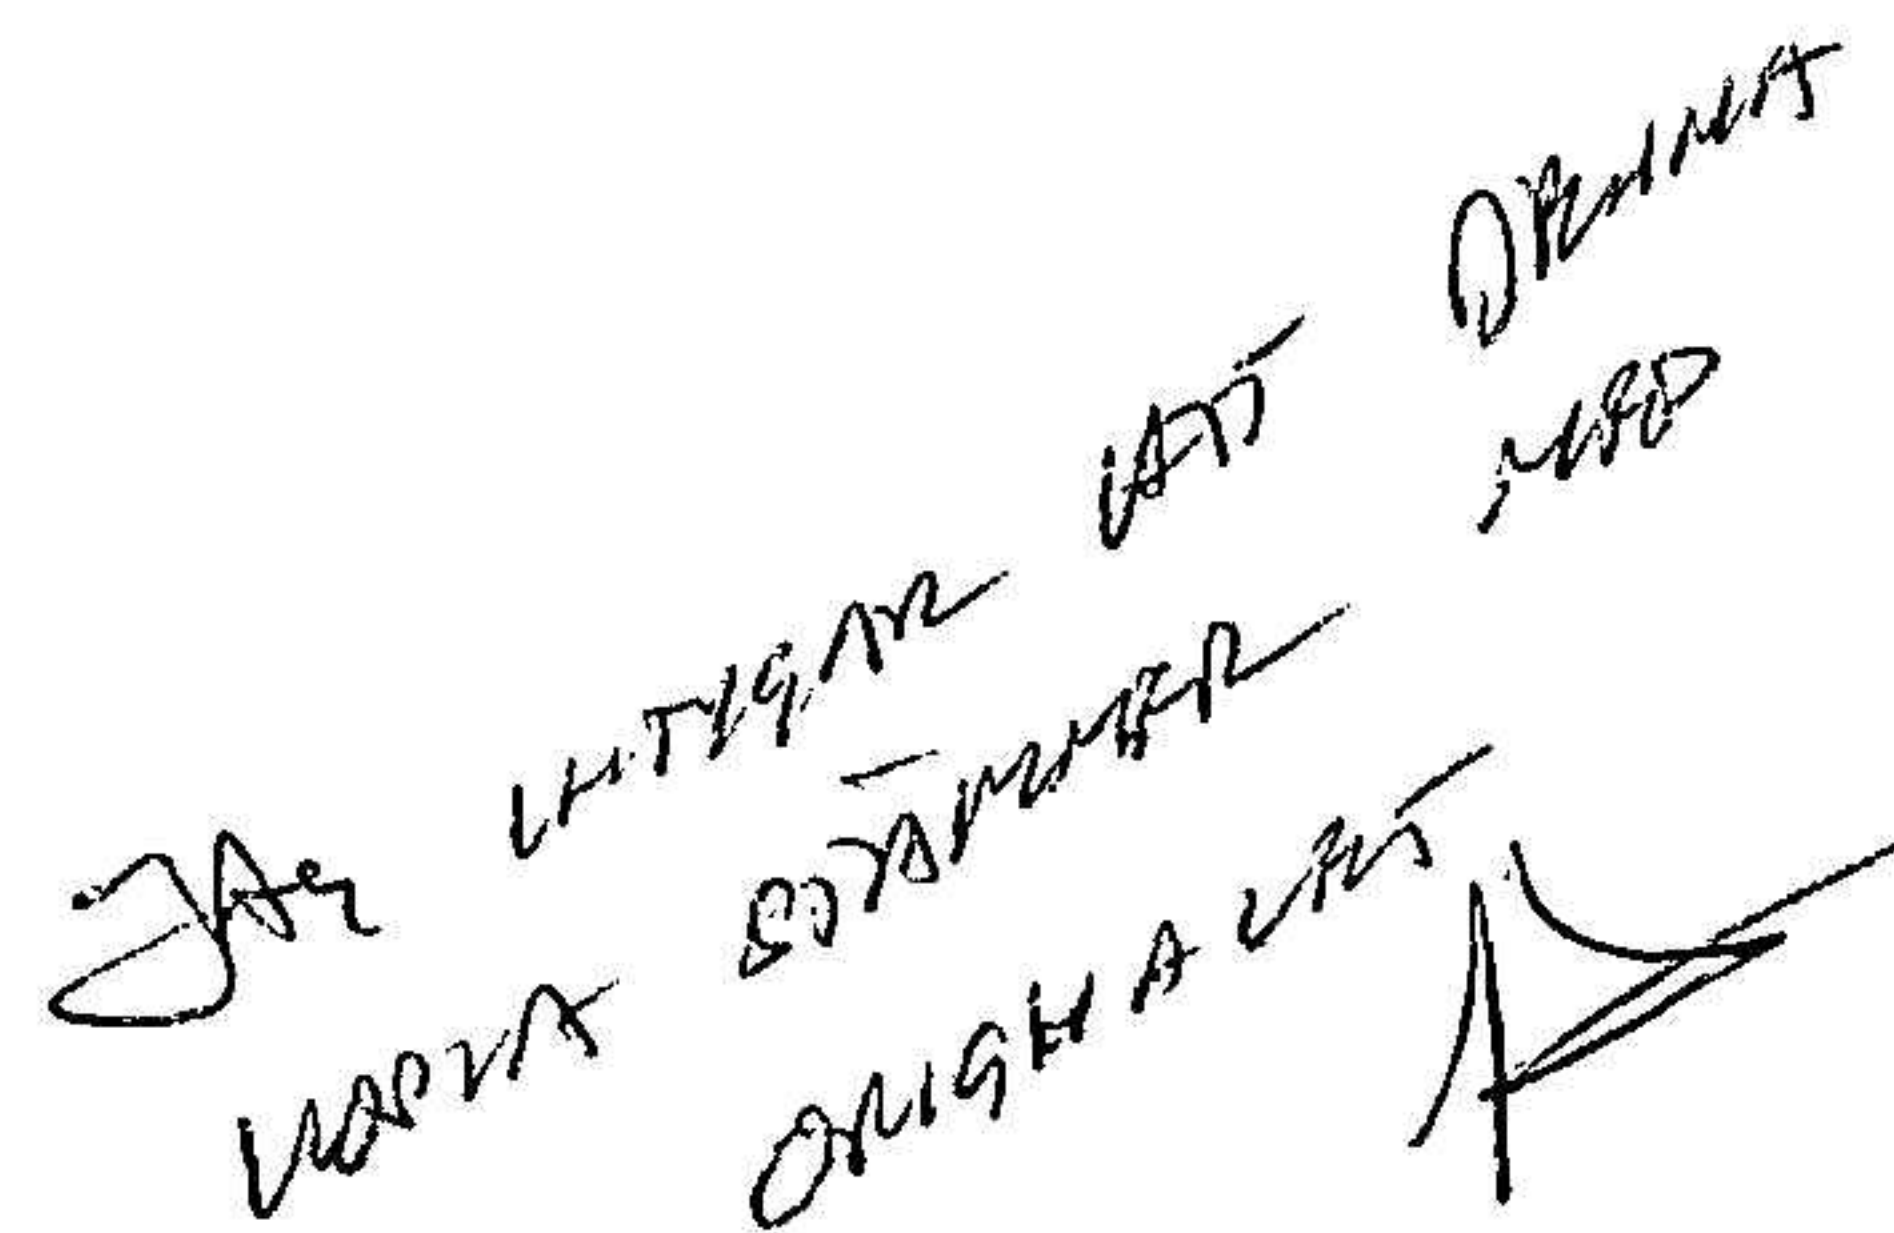 JAG INTYGAR ATT DENNA
KOPIA STÄMMER MED
ORIGINALET